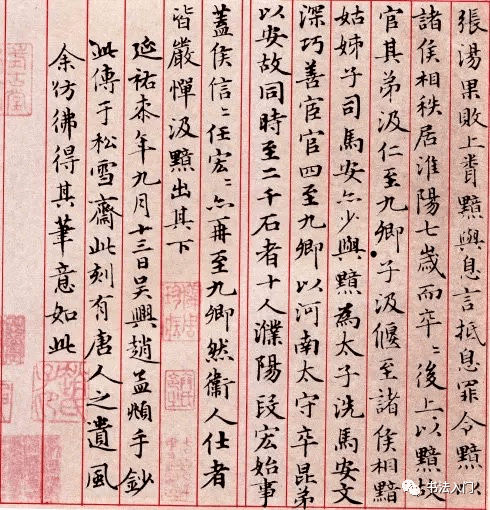 張湯果敗上聞黯與息言抵息罪令黯以
諸侯相秩居淮陽七歲而卒〻後上以黯故
官其弟汲仁至九卿子汲偃至諸侯相黯
姑姊子司馬安亦少與黯為太子洗馬安文
深巧善宦官四至九卿以河南太守卒昆弟
以安故同時至二千石者十人濮陽段宏始事
蓋侯信〻任宏〻亦再至九卿然衛人仕者
皆嚴憚汲黯出其下
延祐柒年九月十三日吳興趙孟頫手鈔
此傳于松雪齋此刻有唐人之遺風
余彷彿得其筆意如此
书法入门